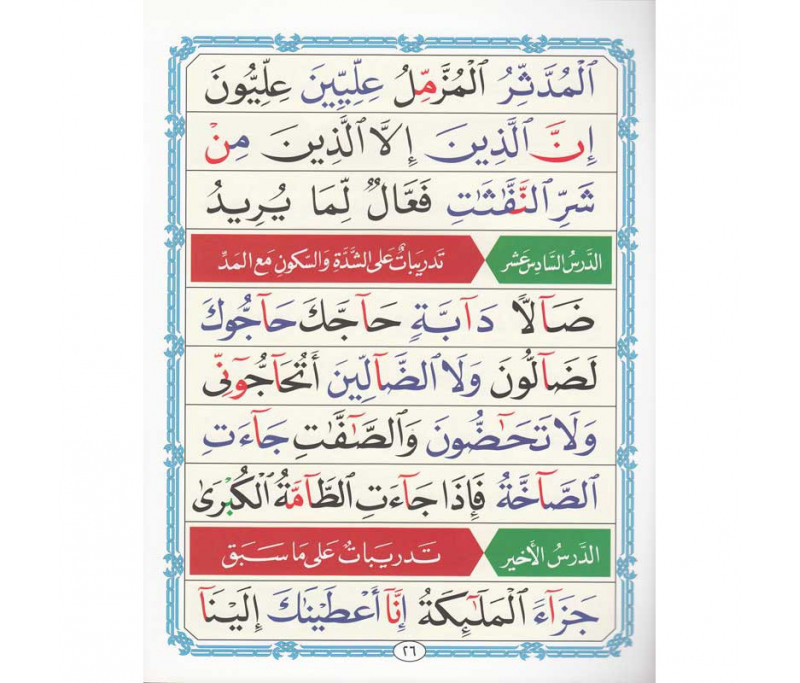 ٱلْمُدَّثِّرُ ٱلْمُزَّمِّلُ عِلِّيِّينَ عِلِّيُّونَ
إِنَّ ٱلَّذِينَ إِلَّا ٱلَّذِينَ مِنْ
شَرِّ ٱلنَّفَّٰثَٰتِ فَعَّالٌ لِّمَا يُرِيدُ
الدَّرسُ السَّادِس عَشر تَدريباتٌ عَلى الشَّدَّةِ وَالسّكونِ مَع المَدِّ
ضَآلًّا دَآبَّةٍ حَآجَّكَ حَآجُّوكَ
لَضَآلُّونَ وَلَا ٱلضَّآلِّينَ أَتُحَٰٓجُّوٓنِّى
وَلَا تَحَٰٓضُّونَ وَٱلصَّٰٓفَّٰتِ جَآءَتِ
ٱلصَّآخَّةُ فَإِذَا جَآءَتِ ٱلطَّآمَّةُ ٱلْكُبْرَىٰ
الدَّرسُ الأَخير تَدريباتٌ عَلى مَا سَبَق
جَزَآءَ ٱلْمَلَٰٓئِكَةُ إِنَّآ أَعْطَيْنَٰكَ إِلَيْنَآ
٢٦